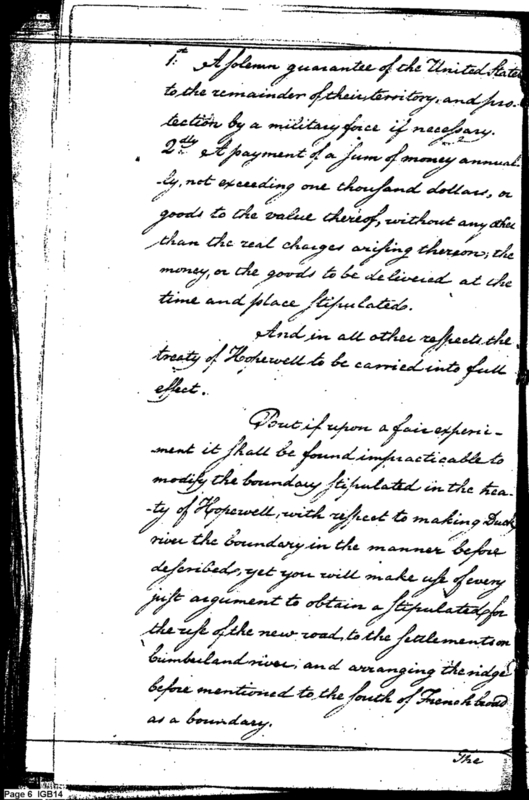 1st A solemn guarantee of the United States
to the remainder of their territory, and pro-
tection by a military force if necessary.
2dly A payment of a sum of money annual-
ly, not exceeding one thousand dollars, or
goods to the value thereof, without any other
than the real charges arising thereon; the
money, or the goods to be delivered at the
time and place stipulated.
And in all other respects the
treaty of Hopewell to be carried into full
effect.
But if upon a fair experi-
ment it shall be found impracticable to
modify the boundary stipulated in the trea-
-ty of Hopewell, with respect to making Duck
river the boundary in the manner before
described, yet you will make use of every
just argument to obtain a stipulated for
the use of the new road, to the settlements on
Cumberland river; and arranging the ridge
before mentioned to the south of French broad
as a boundary.
The
Page 6 IGB14